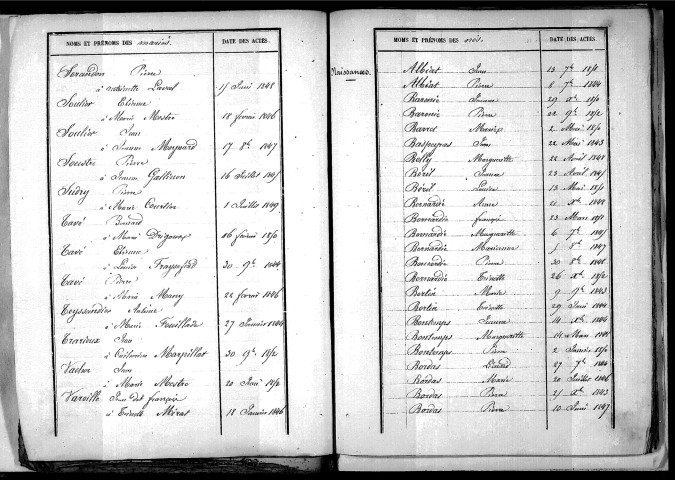 NOMS ET PRÉNOMS DES mariés. DATE DES ACTES.
Serandon Pierre
à Antoinette Laval 15 Juin 1848
Soulier Etienne
à Marie Mestre 18 février 1846
Soulier Jean
à Jeanne Maynard 17 8bre 1847
Soustre Pierre
à Jeanne 16 Juillet
Sudry Pierre
à Marie 1 Juillet 1849
Tavé Bernard
à Marie 16 février 1850
Tavé Etienne
à Louise 30 9bre 1844
Tavé Pierre
à Marie Many 22 février 1846
Teyssandier Antoine
à Marie Feuillade 27 Janvier 1844
Jean
à Catherine Marpillat 30 9bre 1852
Vacher Jean
à Marie Mestre 20 Juin 1850
Vareille Jean dit françois
à Thérèse Mérat 18 Janvier 1846
Naissances.
NOMS ET PRÉNOMS DES nés. DATE DES ACTES.
Albiat Jean 13 7bre 1851
Albiat Pierre 8 7bre 1844
Jeanne 29 Xbre 1850
Pierre 22 9bre 1852
2 Mai 1850
Baspeyras Jean 22 Mai 1843
Belly Marguerite 22 Avril 1848
Béril Jeanne 23 Avril
Béril Louise 13 Mai 1851
Bernardie Anne 21 Xbre 1848
Bernardie françois 23 Mars 1851
Bernardie Marguerite 6 7bre
Bernardie Marianne 5 8bre 1847
Bernardie Pierre 30 8bre 1848
Bernardie Thérèse 26 Xbre 1852
Bertin Marie 9 9bre 1843
Bertin Thérèse 29 Juin 1844
Bontemps Jeanne 14 Xbre 1844
Bontemps Marguerite 14 Mars
Bontemps Pierre 2 Janvier 1850
Bordas 27 7bre 1844
Bordas Marie 20 Juillet 1846
Bordas Pierre 25 Xbre 1843
Bordas Pierre 10 Juin 1847